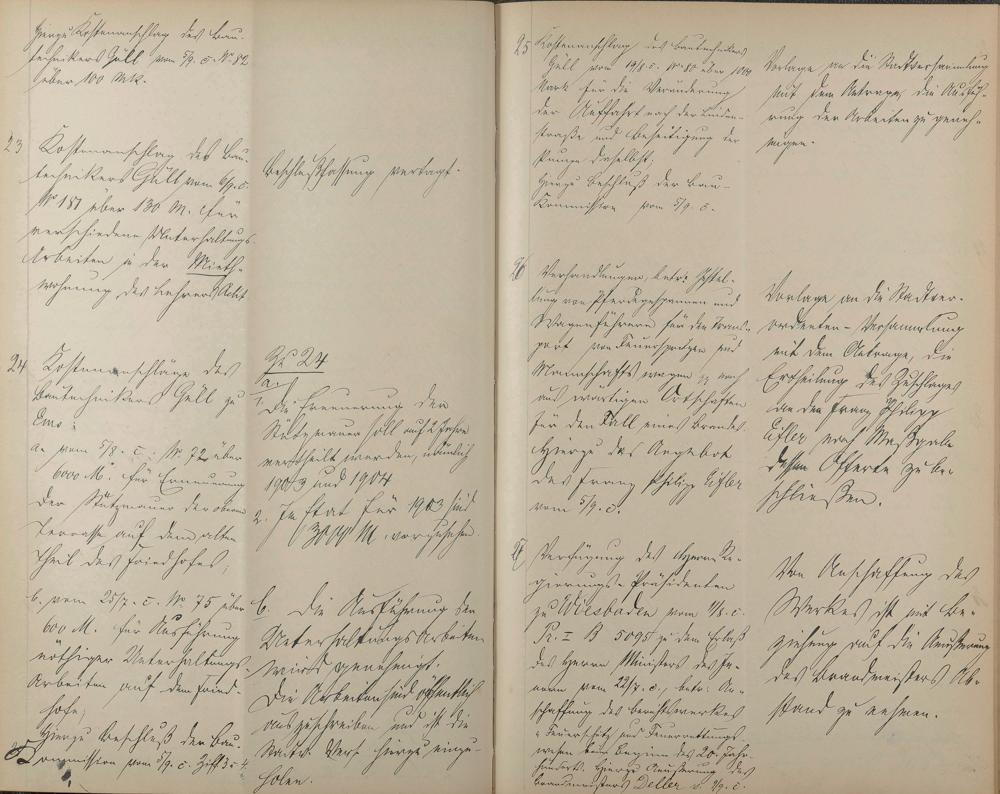 Hierzu Kostenanschlag des Bau-
technikers Güll vom 5/9. c. No 82
über 100 Mk.
23 Kostenanschlag des Bau-
technikers Güll vom 6/9. c.
No 187 über 130 M. für
verschiedene Unterhaltungs-
Arbeiten in der Mieth-
wohnung des Lehrers
Beschlußfassung vertagt.
24 Kostenanschläge des
Bautechnikers Güll zu
Ems:
a. vom 5/8. c. No 72 über
6000 M. für Erneuerung
der Stützmauer der oberen
Terrasse auf dem alten
Theil des Friedhofes,
b. vom 25/7. c. No 75 über
600 M. für Ausführung
nöthiger Unterhaltungs-
Arbeiten auf dem Fried-
hofe,
Hierzu Beschluß der Bau-
Commission vom 5/9. c. Ziff 3 u 4
Zu 24
a.
1. Die Erneuerung der
Stützmauer soll auf 2 Jahre
vertheilt werden, nämlich
1903 und 1904
2. Im Etat für 1903 sind
3000 M. vorzusehen.
b. Die Ausführung der
Unterhaltungsarbeiten
wird genehmigt.
Die Arbeiten sind öffentlich
auszuschreiben und ist die
hierzu einzu-
holen.
25 Kostenanschlag des Bautechnikers
Güll vom 19/8. c. No 80 über 1000
Mark für die Veränderung
der Auffahrt nach der Linden-
straße und Beseitigung der
Pumpe daselbst.
Hierzu Beschluß der Bau-
Kommission vom 5/9. c.
Vorlage an die Stadtversammlung
mit dem Antrage, die Ausfüh-
rung der Arbeiten zu geneh-
migen.
26 Verhandlungen, betr. Gestel-
lung von Pferdegespannen und
Wagenführern für den Trans-
port von Feuerspritzen und
Mannschaftswagen nach
auswärtigen Ortschaften
für den Fall eines Brandes.
Hierzu das Angebot
des Franz Philipp Eifler
vom 5/9. c.
Vorlage an die Stadtver-
ordneten-Versammlung
mit dem Antrage, die
Ertheilung des Zuschlages
an den Franz Philipp
Eifler nach Maßgabe
dessen Offerte zu be-
schließen.
27 Verfügung des Herrn Re-
gierungs-Präsidenten
zu Wiesbaden vom 1/8. c.
Pr. I B 5095 zu dem Erlaß
des Herrn Ministers des In-
nern vom 22/7. c., betr. An-
schaffung des Berichtswerkes
„Feuerschutz und Feuerrettungs-
wesen beim Beginn des 20. Jahr-
hunderts. Hierzu Äußerung des
Brandmeisters Deller v. 2/9. c.
Von Anschaffung des
Werkes ist mit Be-
ziehung auf die Äußerung
des Brandmeisters Ab-
stand zu nehmen.